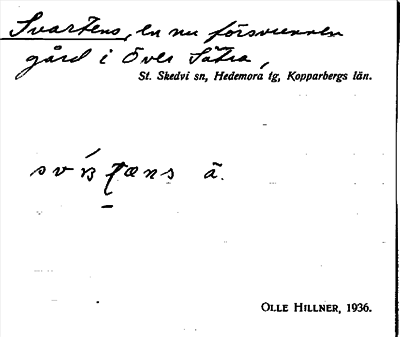 Svartens, en nu försvunnen
gård i Över Sätra,
St. Skedvi sn, Hedemora tg, Kopparbergs län.
ä.
OLLE HILLNER, 1936.